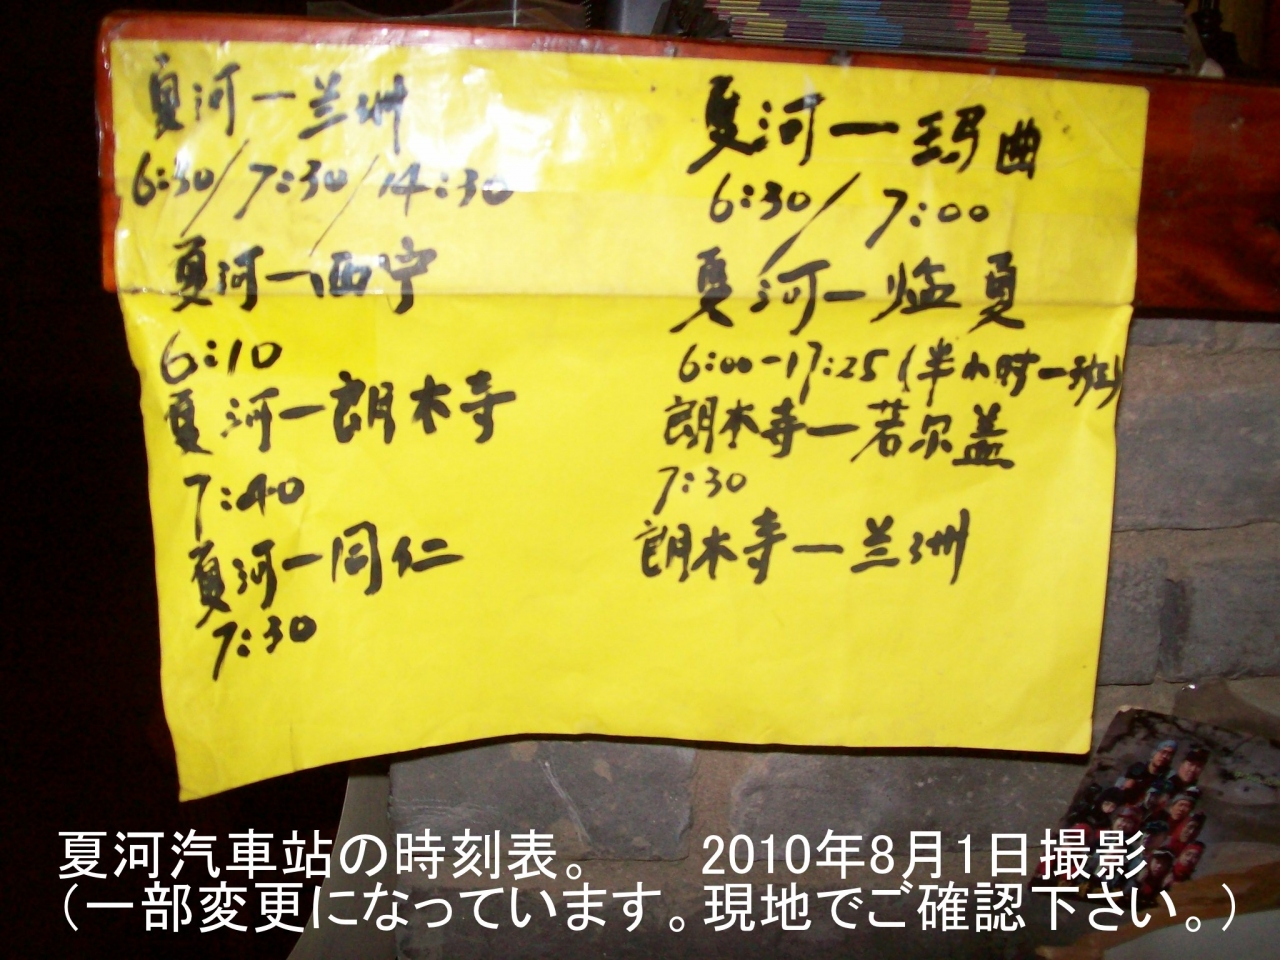 夏河一兰州
6:30/7:30/14:30
夏河一西宁
6:10
夏河一郎木寺
7:40
夏河一同仁
7:30
夏河一玛曲
6:30/7:00
夏河一临夏
6:00-17:25(半小时一班)
郎木寺一若尔盖
7:30
郎木寺一兰州
夏河汽車站の時刻表。 2010年8月1日撮影
(一部変更になっています。現地でご確認下さい。)